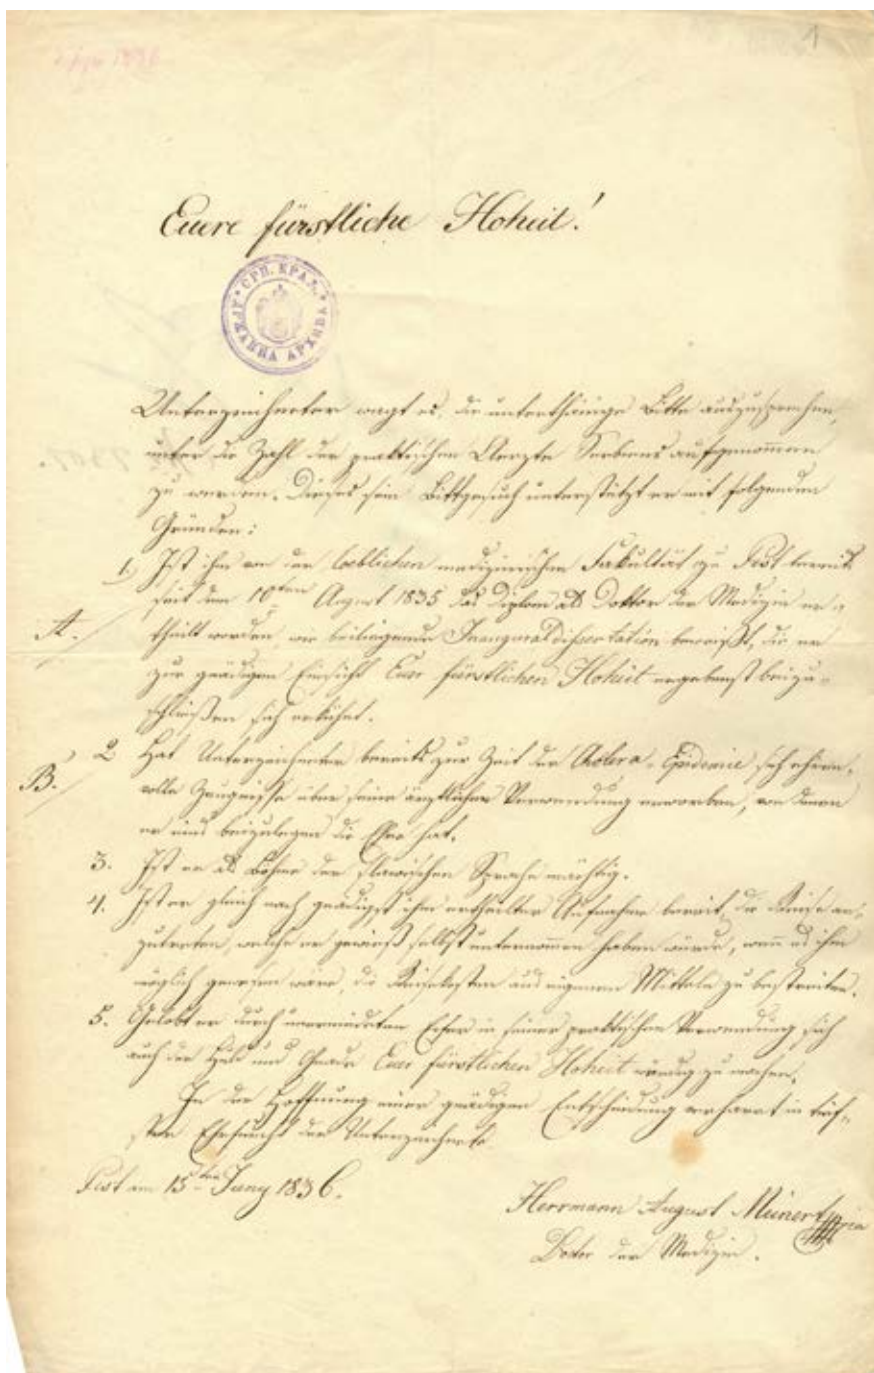 1
Euere fürstliche Hoheit!
СРП. КРАЉ. ДРЖАВНА АРХИВА
Unterzeichneter wagt es, die unterthänige Bitte auszusprechen,
unter die Zahl der praktischen Aerzte Serbiens aufgenommen
zu werden. Dieses sein Bittgesuch unterstützt er mit folgenden
Gründen:
1. Ist ihm von der loeblichen medizinischen Fakultät zu Pest bereits
seit dem 10ten August 1835 das Diplom als Doktor der Medizin er=
A. theilt worden, wie beiliegende Inauguraldissertation beweißt, die er
zur gnädigen Einsicht Euer fürstlichen Hoheit ergebenst beizu=
schließen sich erkühnt.
2 Hat Unterzeichneter bereits zur Zeit der Cholera-Epidemie sehr ehren=
B. volle Zeugnisse über seine ärztliche Verwendung erworben, von denen
er eins beizulegen die Ehre hat.
3. Ist er als Böhme der slawischen Sprache mächtig.
4. Ist er gleich nach gnädigst ihm ertheilter Aufnahme bereit, die Reise an=
zutreten, welche er gewiß selbst unternommen haben würde, wenn es ihm
möglich gewesen wäre, die Reisekosten aus eigenen Mitteln zu bestreiten.
5. Gelobt er durch unermüdeten Eifer in seiner praktischen Verwendung sich
auch der Huld und Gnade Euer fürstlichen Hoheit würdig zu machen.
In der Hoffnung einer gnädigen Entscheidung verharrt in tief=
ster Ehrfurcht der Unterzeichnete
Pest am 15ten Juny 1836.
Herrmann August Meinert
Doctor der Medizin.